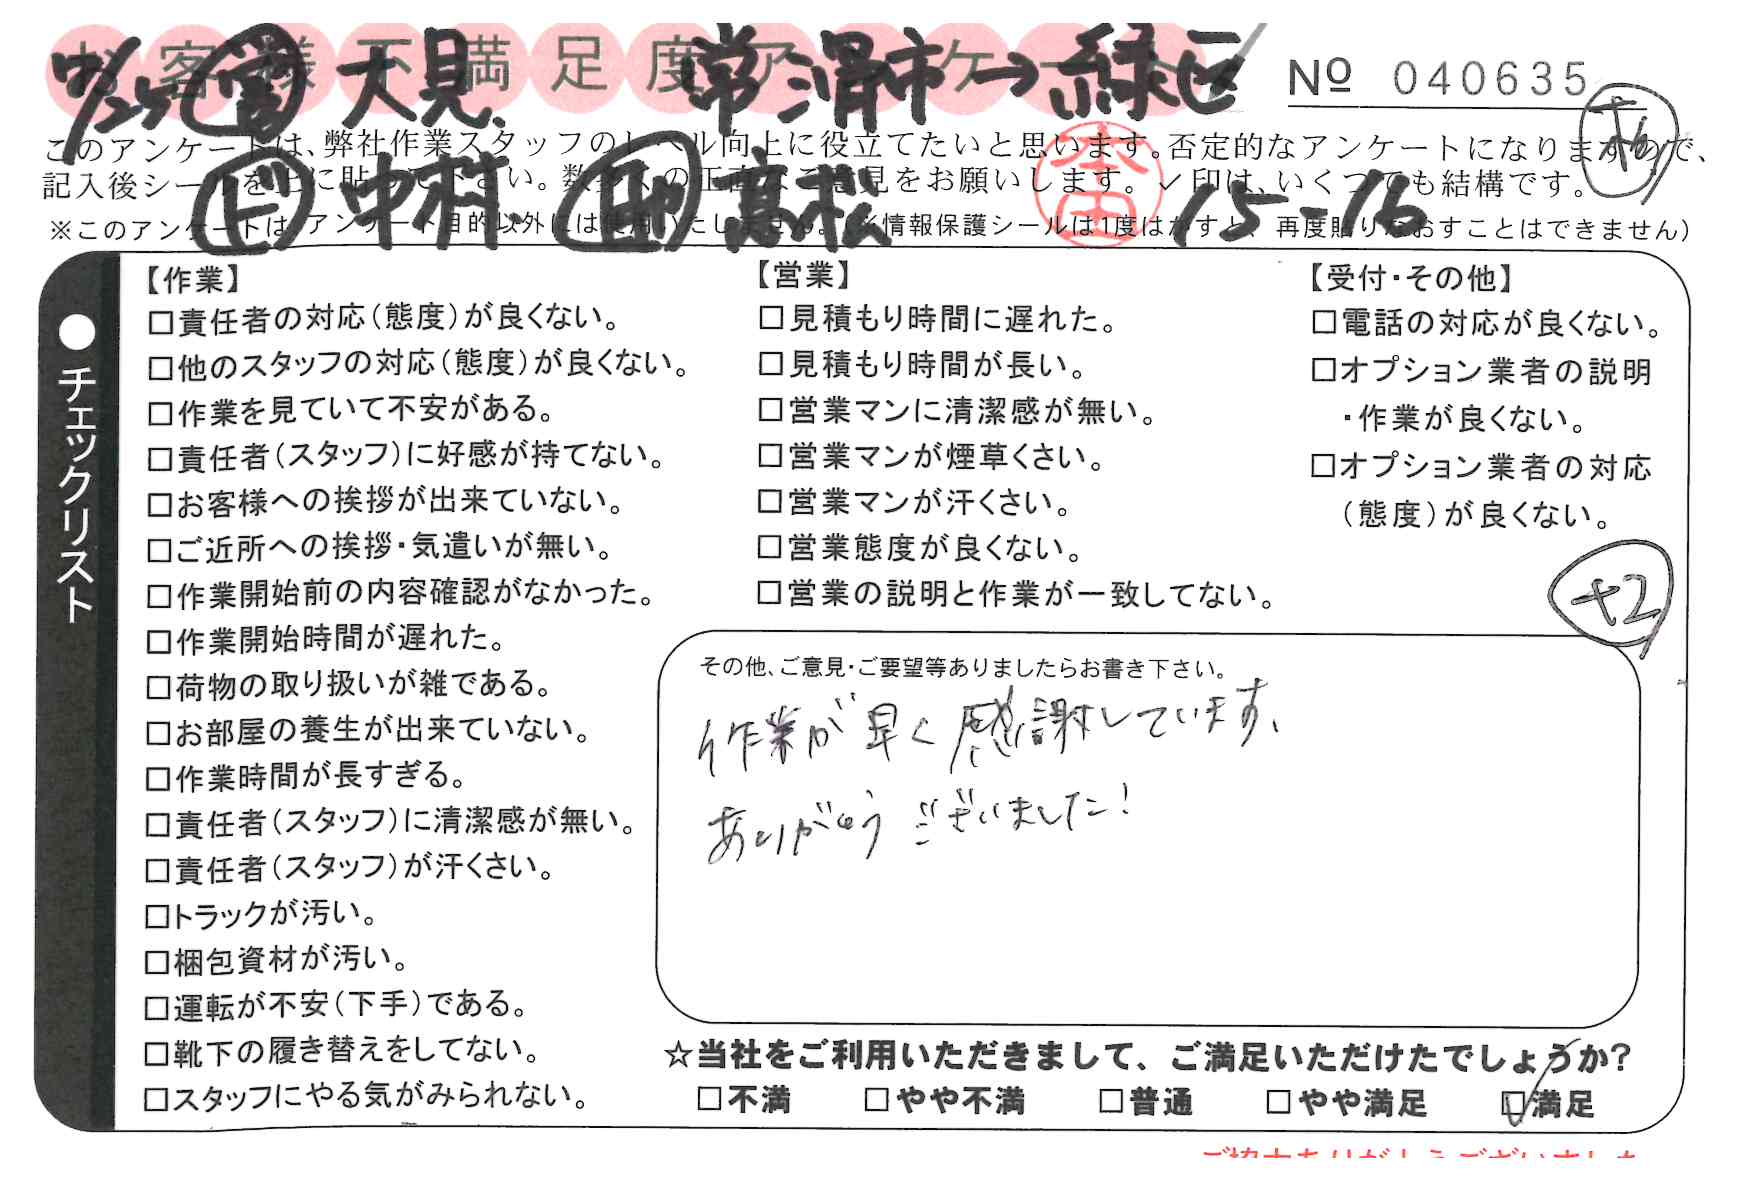 お客様不満足度アンケート
11/25 営 大見 常滑市→緑区
№ 040635
このアンケートは、弊社作業スタッフのレベル向上に役立てたいと思います。否定的なアンケートになりますので、
記入後シールを上に貼って下さい。数多くの正直なご意見をお願いします。✓印は、いくつでも結構です。
ビ 中村 高松 本田 15-16
※このアンケートは、アンケート目的以外には使用いたしません。(※情報保護シールは1度はがすと、再度貼りなおすことはできません)
●チェックリスト
【作業】
□責任者の対応(態度)が良くない。
□他のスタッフの対応(態度)が良くない。
□作業を見ていて不安がある。
□責任者(スタッフ)に好感が持てない。
□お客様への挨拶が出来ていない。
□ご近所への挨拶・気遣いが無い。
□作業開始前の内容確認がなかった。
□作業開始時間が遅れた。
□荷物の取り扱いが雑である。
□お部屋の養生が出来ていない。
□作業時間が長すぎる。
□責任者(スタッフ)に清潔感が無い。
□責任者(スタッフ)が汗くさい。
□トラックが汚い。
□梱包資材が汚い。
□運転が不安(下手)である。
□靴下の履き替えをしてない。
□スタッフにやる気がみられない。
【営業】
□見積もり時間に遅れた。
□見積もり時間が長い。
□営業マンに清潔感が無い。
□営業マンが煙草くさい。
□営業マンが汗くさい。
□営業態度が良くない。
□営業の説明と作業が一致してない。
【受付・その他】
□電話の対応が良くない。
□オプション業者の説明
・作業が良くない。
□オプション業者の対応
(態度)が良くない。
+2
その他、ご意見・ご要望等ありましたらお書き下さい。
作業が早く感謝しています、
ありがとうございました!
☆当社をご利用いただきまして、ご満足いただけたでしょうか?
□不満 □やや不満 □普通 □やや満足 ☑満足
ご協力ありがとうございました